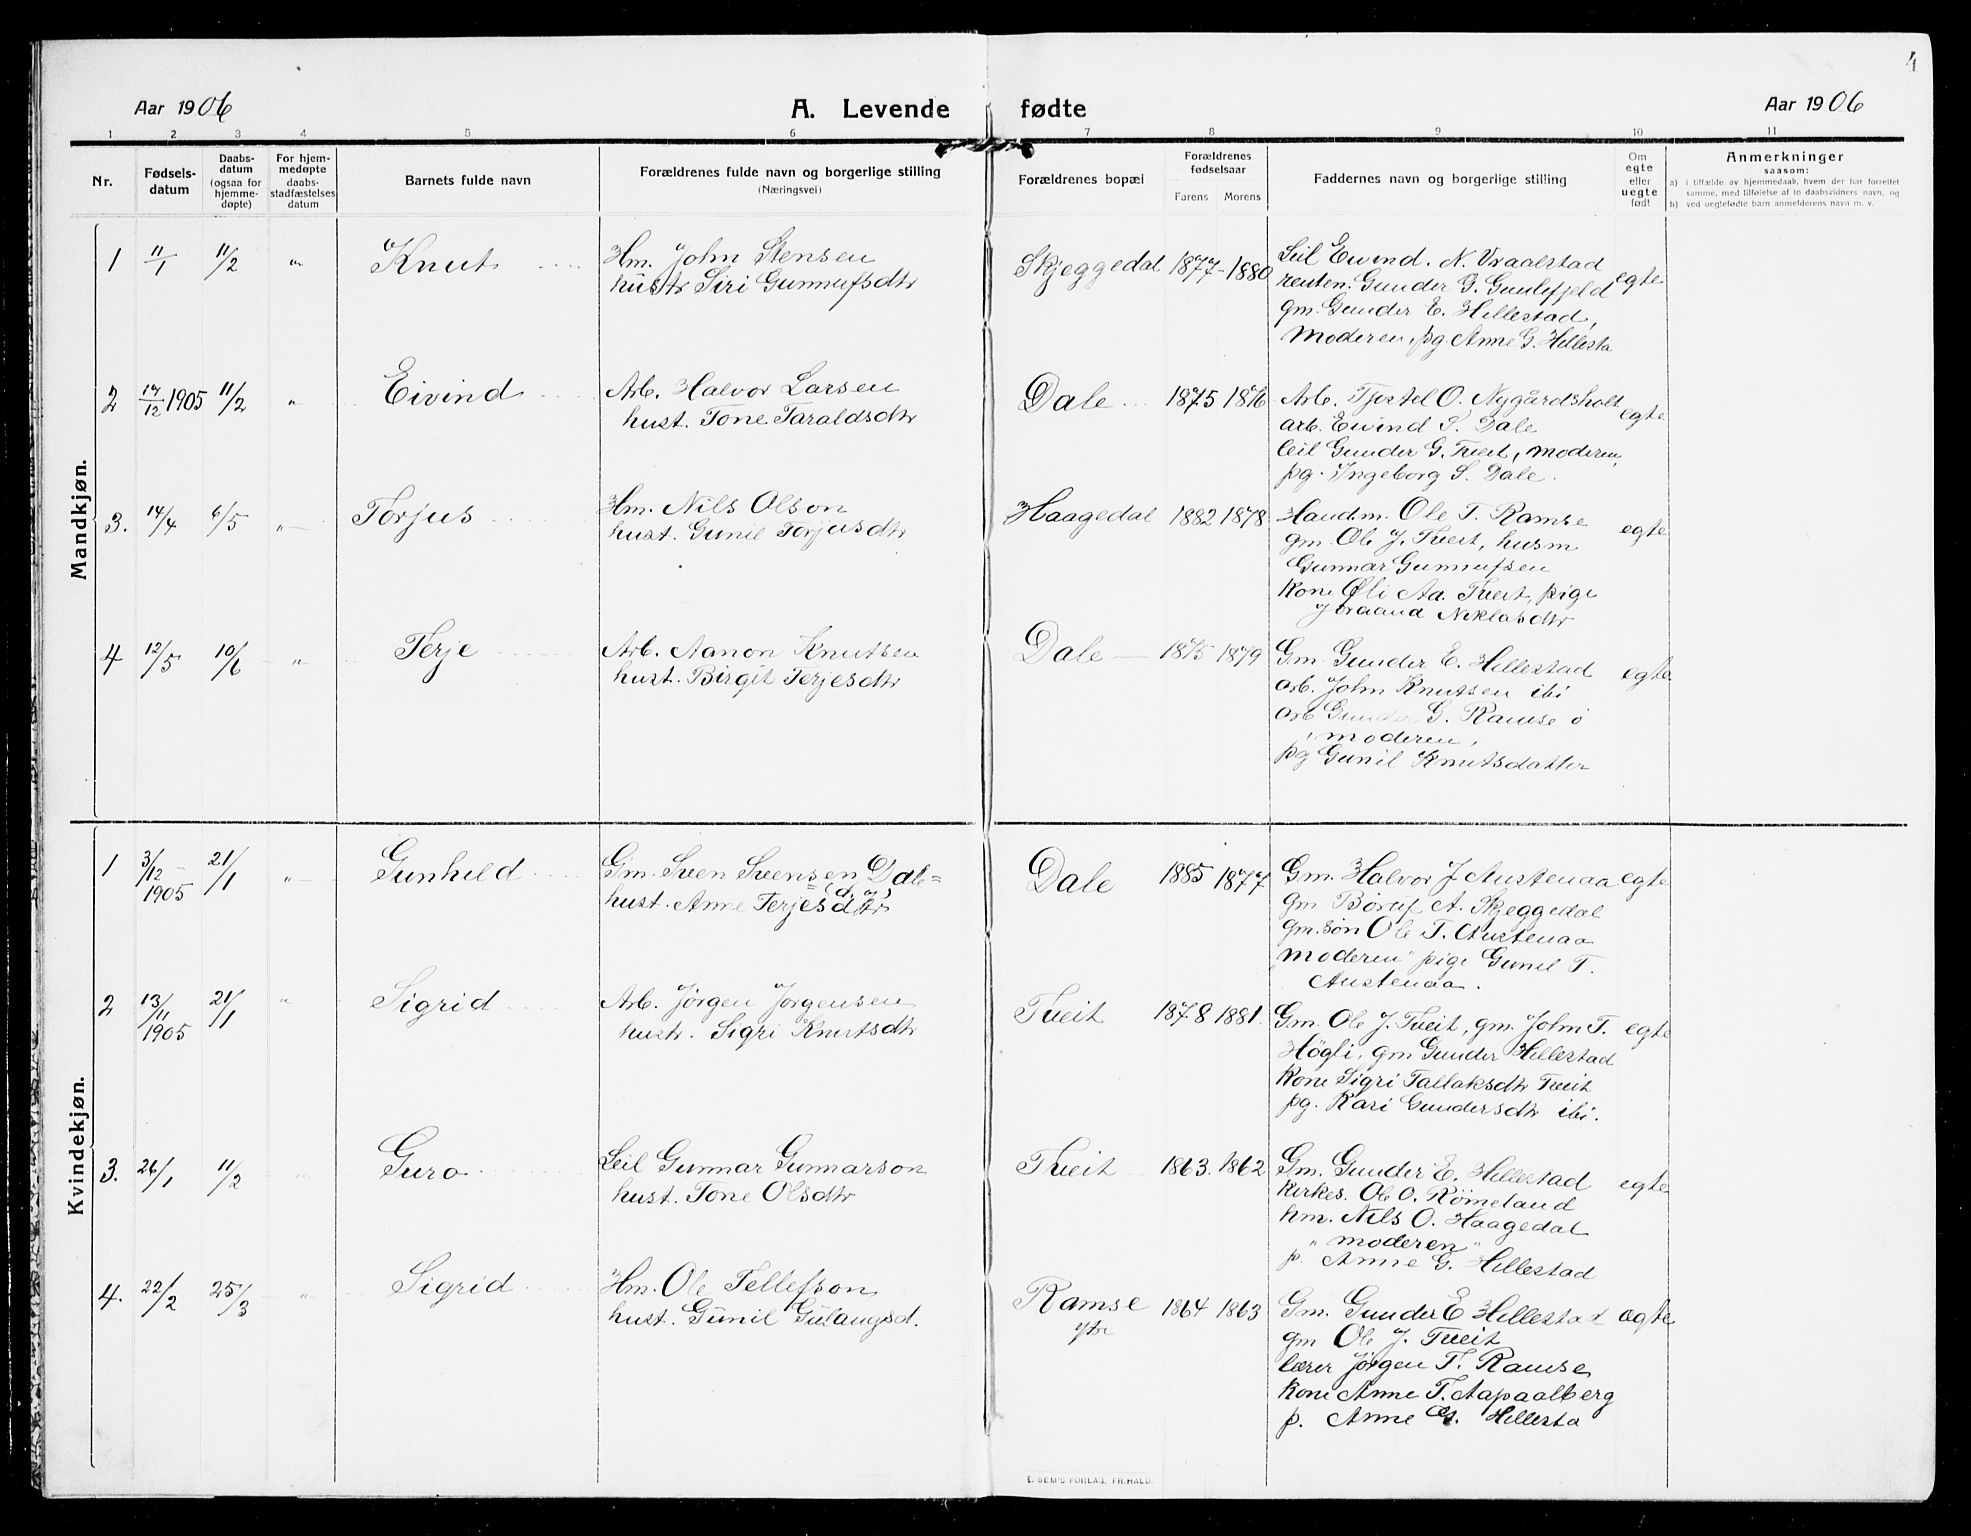 4
Aar 1906
A. Levende fødte
Aar 1906
1 2 3 4 5 6 7 8 9 10 11
Nr.
Fødsels-
datum
Daabs-
datum
(ogsaa for
hjemme-
døpte)
For hjem-
medøpte
daabs-
stadfæstelses
datum
Barnets fulde navn
Forældrenes fulde navn og borgerlige stilling
(Næringsvei)
Forældrenes bopæl
Forældrenes
fødselsaar
Farens Morens
Faddernes navn og borgerlige stilling
Om
egte
eller
uegte
født
Anmerkninger
saasom:
a) i tilfælde av hjemmedaab, hvem der har forrettet
samme, med tilføielse af to daabsvidners navn, og
b) ved uegtefødte barn anmelderens navn m. v.
Mandkjøn.
1 11/1 11/2 " Knut
Hm. John Stensen
hustr Siri Gunnufsdtr
Skjeggedal 1877-1880
Leil Eivind. N. Vraalstad
Gunder G. Gunlefjeld
gm. Gunder E. Hillestad,
Moderen, pg. Anne G. Hillesta
egte
2 17/12 1905 11/2 " Eivind
Arb. Halvor Larsen
hust. Tone Taraldsdtr
Dale 1875 1876
Arb. Tjostel O. Nygårdsholt
arb. Eivind S. Dale
leil Gunder G. Tveit, moderen,
pg. Ingeborg S. Dale.
egte
3. 14/4 6/5 " Torjus
Hm. Nils Olson
hust. Gunil Torjusdtr
Haagedal 1882 1878
Handm. Ole T. Ramse
gm. Ole J. Tveit, husm
Gunnar Gunnufsen
kone Øli Aa. Tveit, pige
Joraand Niklasdtr
egte
4 12/5 10/6 " Terje
Arb. Aanon Knutsen
hust. Birgit Terjesdtr
Dale 1875 1879
Gm. Gunder E. Hillestad
arb. John Knutsen ibi
arb Gunder G. Ramse ö
moderen,
pg Gunil Knutsdatter
egte
Kvindekjøn.
1 3/12 1905 21/1 " Gunhild
Gm. Sven Svensen Dale=
hust. Anne Terjesdtr
Dale 1885 1877
Gm. Halvor J Austenaa
gm. Böruf A. Skjeggedal
gm. søn Ole T. Austenaa
"moderen" pige Gunil T.
Austenaa.
egte
2 13/11 1905 21/1 " Sigrid
Arb. Jørgen Jørgensen
hustr. Sigri Knutsdtr
Tveit 1878 1881.
Gm. Ole J. Tveit, gm. John T.
Högli, gm Gunder Hillestad
kone Sigri Tallaksdtr Tveit
pg. Kari Gundersdtr ibi.
egte
3. 26/1 11/2 Guro
Leil Gunnar Gunnarson
hust. Tone Olsdtr
Tveit 1863. 1862
Gm. Gunder E. Hillestad
kirkes. Ole O. Rømeland
hm. Nils O. Haagedal
"moderen"
p. Anne G. Hillestad
egte
4. 22/2 25/3 " Sigrid
Hm. Ole Tellefson
hust. Gunil Gulaugsd.
Ramse
ytre
1864 1863
Gm. Gunder E Hillestad
gm Ole J. Tveit
lærer Jörgen T. Ramse
kone Anne T. Aapaalberg
p. Anne G. Hillesta
ægte
E. SEM'S FORLAG, FR.HALD.